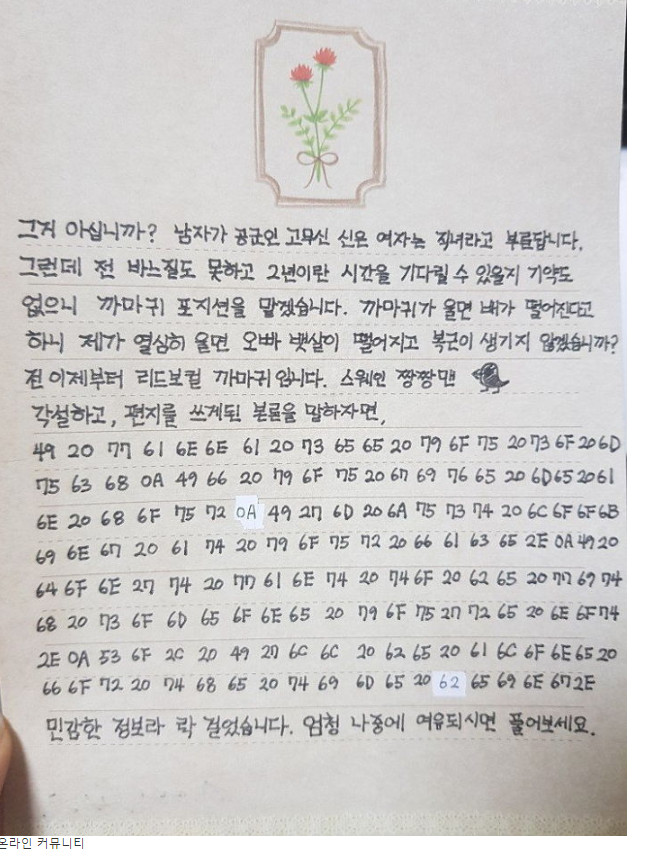 그거 아십니까? 남자가 공군인 고무신 신은 여자는 직녀라고 부른답니다.
그런데 전 바느질도 못하고 2년이란 시간을 기다릴 수 있을지 기약도
없으니 까마귀 포지션을 맡겠습니다. 까마귀가 울면 배가 떨어진다고
하니 제가 열심히 울면 오빠 뱃살이 떨어지고 복근이 생기지 않겠습니까?
전 이제부터 리드보컬 까마귀입니다. 스웨인 짱짱맨
각설하고, 편지를 쓰게된 본론을 말하자면,
49 20 77 61 6E 6E 61 20 73 65 65 20 79 6F 75 20 73 6F 20 6D
75 63 68 0A 49 66 20 79 6F 75 20 67 69 76 65 20 6D 65 20 61
6E 20 68 6F 75 72 0A 49 27 6D 20 6A 75 73 74 20 6C 6F 6F 6B
69 6E 67 20 61 74 20 79 6F 75 72 20 66 61 63 65 2E 0A 49 20
64 6F 6E 27 74 20 77 61 6E 74 20 74 6F 20 62 65 20 77 69 74
68 20 73 6F 6D 65 6F 6E 65 20 79 6F 75 27 72 65 20 6E 6F 74
2E 0A 53 6F 2C 20 49 27 6C 6C 20 62 65 20 61 6C 6F 6E 65 20
66 6F 72 20 74 68 65 20 74 69 6D 65 20 62 65 69 6E 67 2E
민감한 정보라 락 걸었습니다. 엄청 나중에 여유되시면 풀어보세요.
온라인 커뮤니티